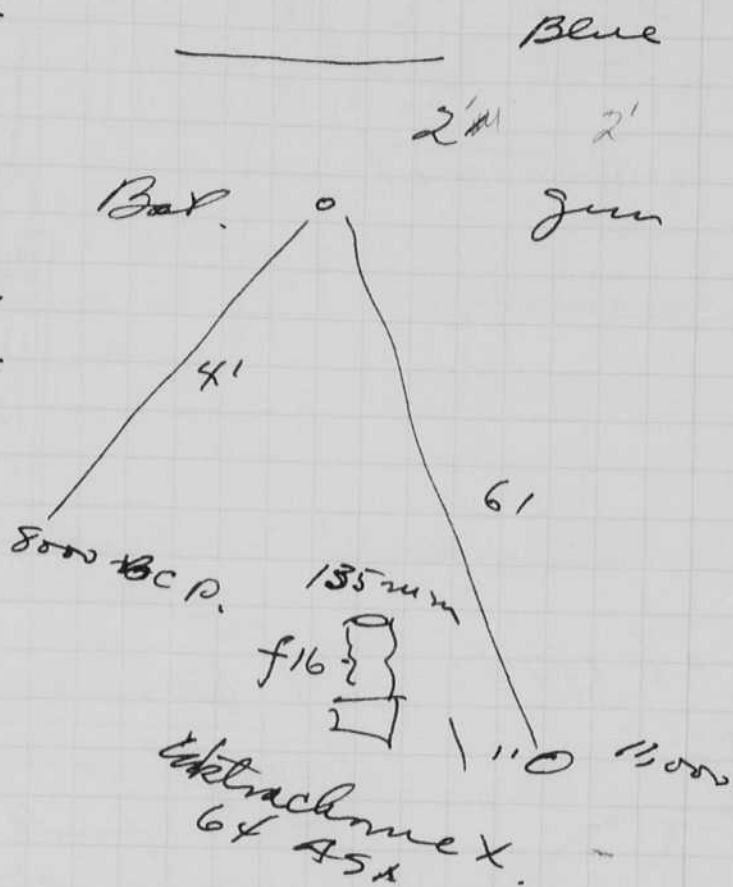 Blue
2' 2'
Bal. gun
4'
6'
8000 BCP.
135 mm
f16
11,000
Ektachrome X.
64 ASA